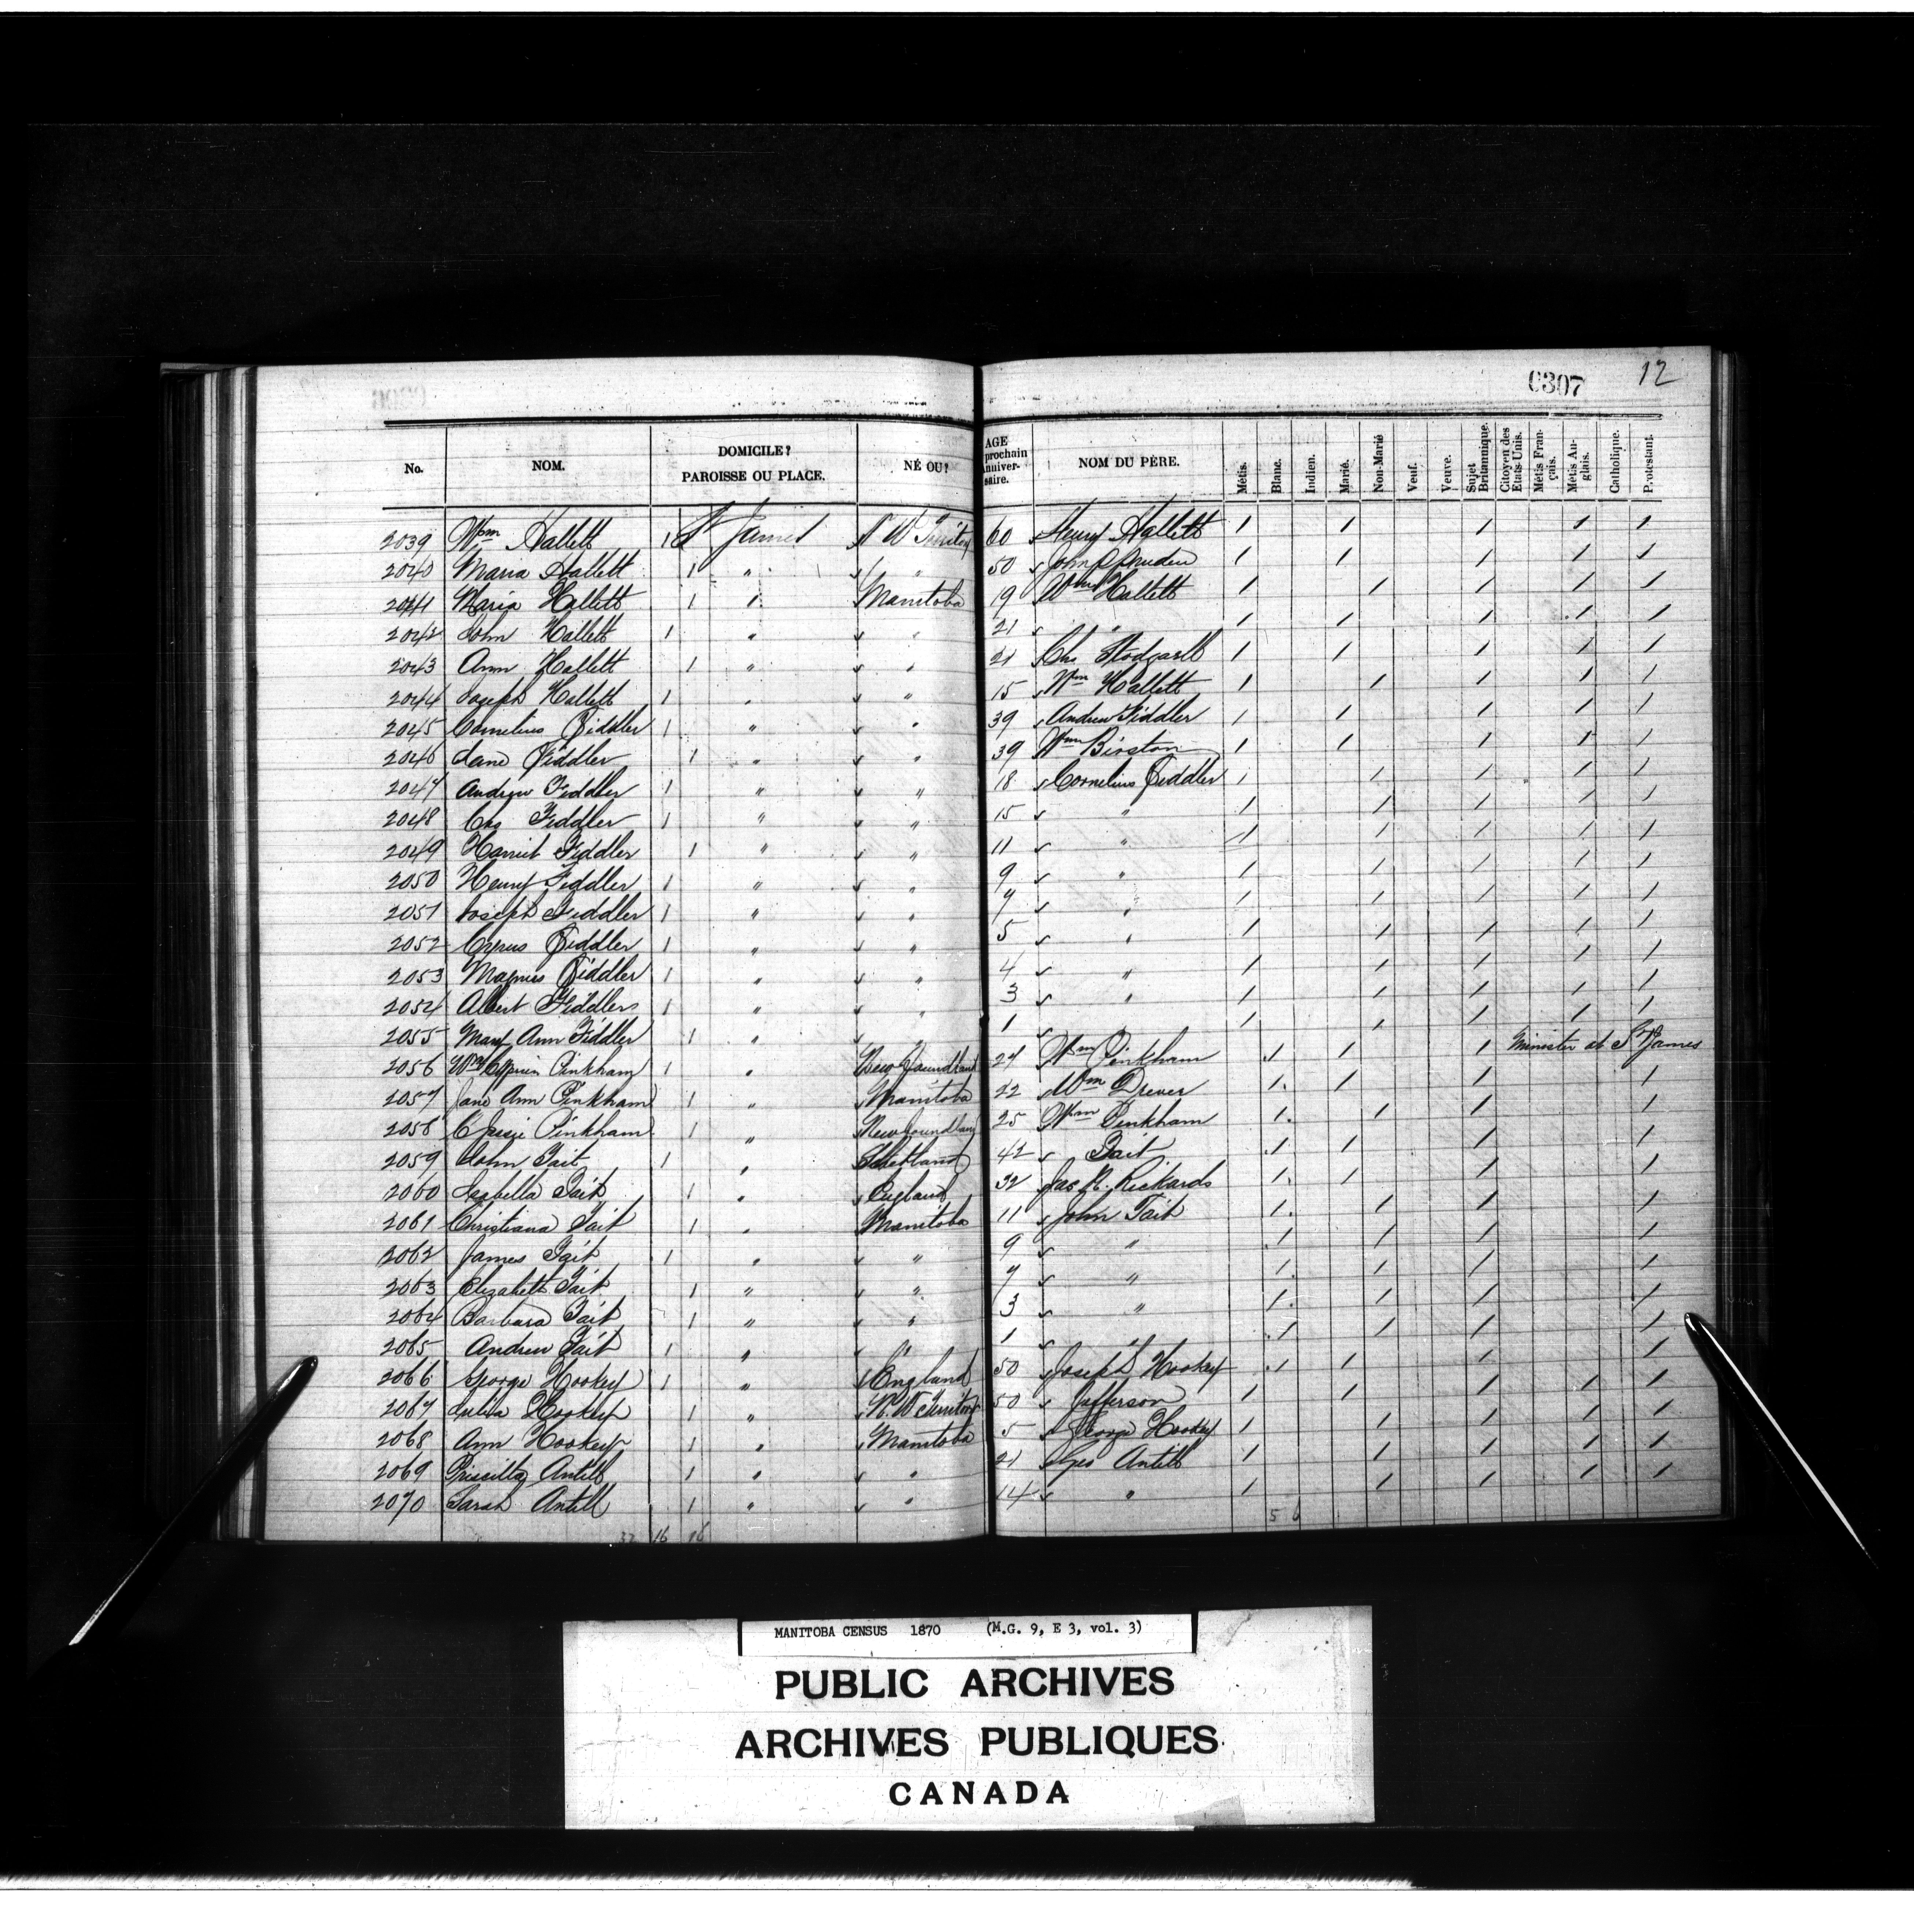 0307 12
No. NOM. DOMICILE? PAROISSE OU PLACE. NÉ OU? AGE prochain Anniver- saire. NOM DU PÈRE. Métis. Blanc. Indien. Marié. Non-Marié Veuf. Veuve. Sujet Britannique. Citoyen des Etats-Unis. Métis Fran- çais. Métis An- glais. Catholique. Protestant.
2039 Wm Hallett 1 St James N W Territory 60 Henry Hallett 1 1 1 1 1
2040 Maria Hallett 1 " " 50 John Pruden 1 1 1 1 1
2041 Maria Hallett 1 " Manitoba 19 Wm Hallett 1 1 1 1 1
2042 John Hallett 1 " " 21 " 1 1 1 1 1
2043 Ann Hallett 1 " " 21 1 1 1 1 1
2044 Joseph Hallett 1 " " 15 Wm Hallett 1 1 1 1 1
2045 Cornelius Fiddler 1 " " 39 Andrew Fiddler 1 1 1 1 1
2046 Jane Fiddler 1 " " 39 Wm Birston 1 1 1 1 1
2047 Andrew Fiddler 1 " " 18 Cornelius Fiddler 1 1 1 1 1
2048 Chs Fiddler 1 " " 15 " 1 1 1 1 1
2049 Harriet Fiddler 1 " " 11 " 1 1 1 1 1
2050 Henry Fiddler 1 " " 9 " 1 1 1 1 1
2051 Joseph Fiddler 1 " " 7 " 1 1 1 1 1
2052 Fiddler 1 " " 5 " 1 1 1 1 1
2053 Magnus Fiddler 1 " " 4 " 1 1 1 1 1
2054 Albert Fiddler 1 " " 3 " 1 1 1 1 1
2055 Mary Ann Fiddler 1 " " 1 " 1 1 1 1 1
2056 Wm Cyprian Pinkham 1 " Newfoundland 24 Wm Pinkham 1 1 1 Minister at St James
2057 Jane Ann Pinkham 1 " Manitoba 22 Wm Drever 1 1 1 1
2058 Pinkham 1 " Newfoundland 25 Wm Pinkham 1 1 1 1
2059 John Tait 1 " Shetland 42 Tait 1 1 1 1
2060 Isabella Tait 1 " England 32 Jas R. Rickards 1 1 1 1
2061 Christiana Tait 1 " Manitoba 11 John Tait 1 1 1 1
2062 James Tait 1 " " 9 " 1 1 1 1
2063 Elizabeth Tait 1 " " 7 " 1 1 1 1
2064 Barbara Tait 1 " " 3 " 1 1 1 1
2065 Andrew Tait 1 " " 1 " 1 1 1 1
2066 George Hookey 1 " England 50 Joseph Hookey 1 1 1 1
2067 Julia Hookey 1 " N. W Territory 50 Jefferson 1 1 1 1 1
2068 Ann Hookey 1 " Manitoba 5 George Hookey 1 1 1 1 1
2069 Priscilla Antill 1 " " 21 Geo Antill 1 1 1 1 1
2070 Sarah Antill 1 " " 14 " 1 1 1 1 1
32 16 16 5 6
MANITOBA CENSUS 1870 (M.G. 9, E 3, vol. 3)
PUBLIC ARCHIVES
ARCHIVES PUBLIQUES
CANADA